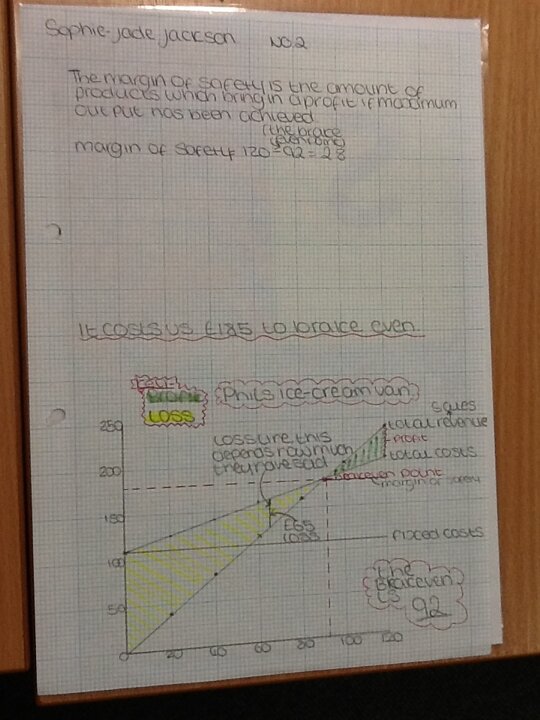 Sophie-Jade Jackson NO2
The margin of safety is the amount of
products which bring in a profit if maximum
output has been achieved
(the brace
even point)
margin of safety 120 - 92 = 28
It costs us £185 to braice even
Key:-
Profit
Loss
Phil's ice-cream van
250
200
150
100
50
0
sales
total revenue
profit
total costs
this
depends how much
they have sold
Braceeven point
margin of safety
£65
loss
fixed costs
The
Braceeven
is
92
20 40 60 80 100 120